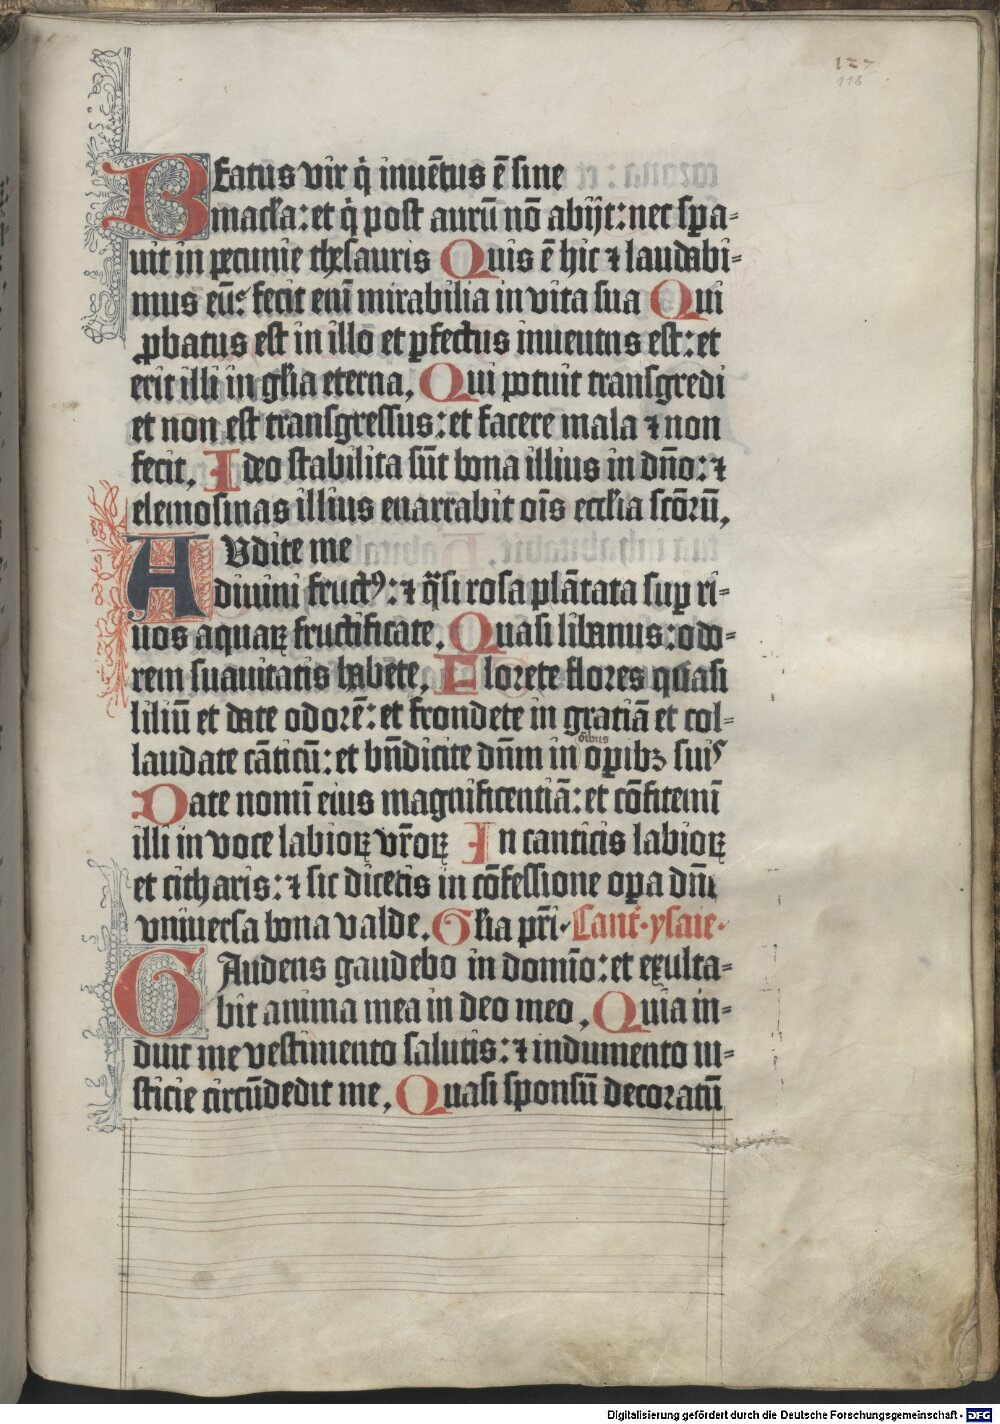 127
118
Beatus vir q̇ inuētus ē sine
macl̄a: et q̇ post aurū nō abijt: nec sp̱a-
uit in pecunie thesauris Quis ē hic ⁊ laudabi-
mus eū: fecit eni̅ mirabilia in vita sua Qui
ꝓbatus est in illo̅ et ꝑfectus inuentus est: et
erit illi in gl̄ia eterna, Qui potuit transgredi
et non est transgressus: et facere mala ⁊ non
fecit, Ideo stabilita su̅t bona illius in dn̄o: ⁊
elemosinas illius enarrabit oi̅s eccl̄ia sco̅ru̅,
AVdite me
diuini fructꝰ: ⁊ q̄si rosa plātata suꝑ ri-
uos aquaꝝ fructificate, Quasi libanus: odo-
rem suauitatis habēte, Florete flores quasi
liliū et date odorē: et frondete in gratiā et col-
laudate cāticū: et bn̄dicite dn̄m in oꝑibꝫ suis
oi̅bus
Date nomi̅ eius magnificentiā: et cōfitemi̅
illi in voce labioꝝ vr̄oꝝ In canticis labioꝝ
et citharis: ⁊ sic dicetis in cōfessione oꝑa dn̄i
vniuersa bona valde. Gl̄ia pr̄i. Cant̄. ysaie.
GAudens gaudebo in domi̅o: et exulta-
bit anima mea in deo meo, Quia in-
duit me vestimento salutis: ⁊ indumento iu-
sticie circūdedit me, Quasi sponsū decoratū
Digitalisierung gefördert durch die Deutsche Forschungsgemeinschaft - DFG